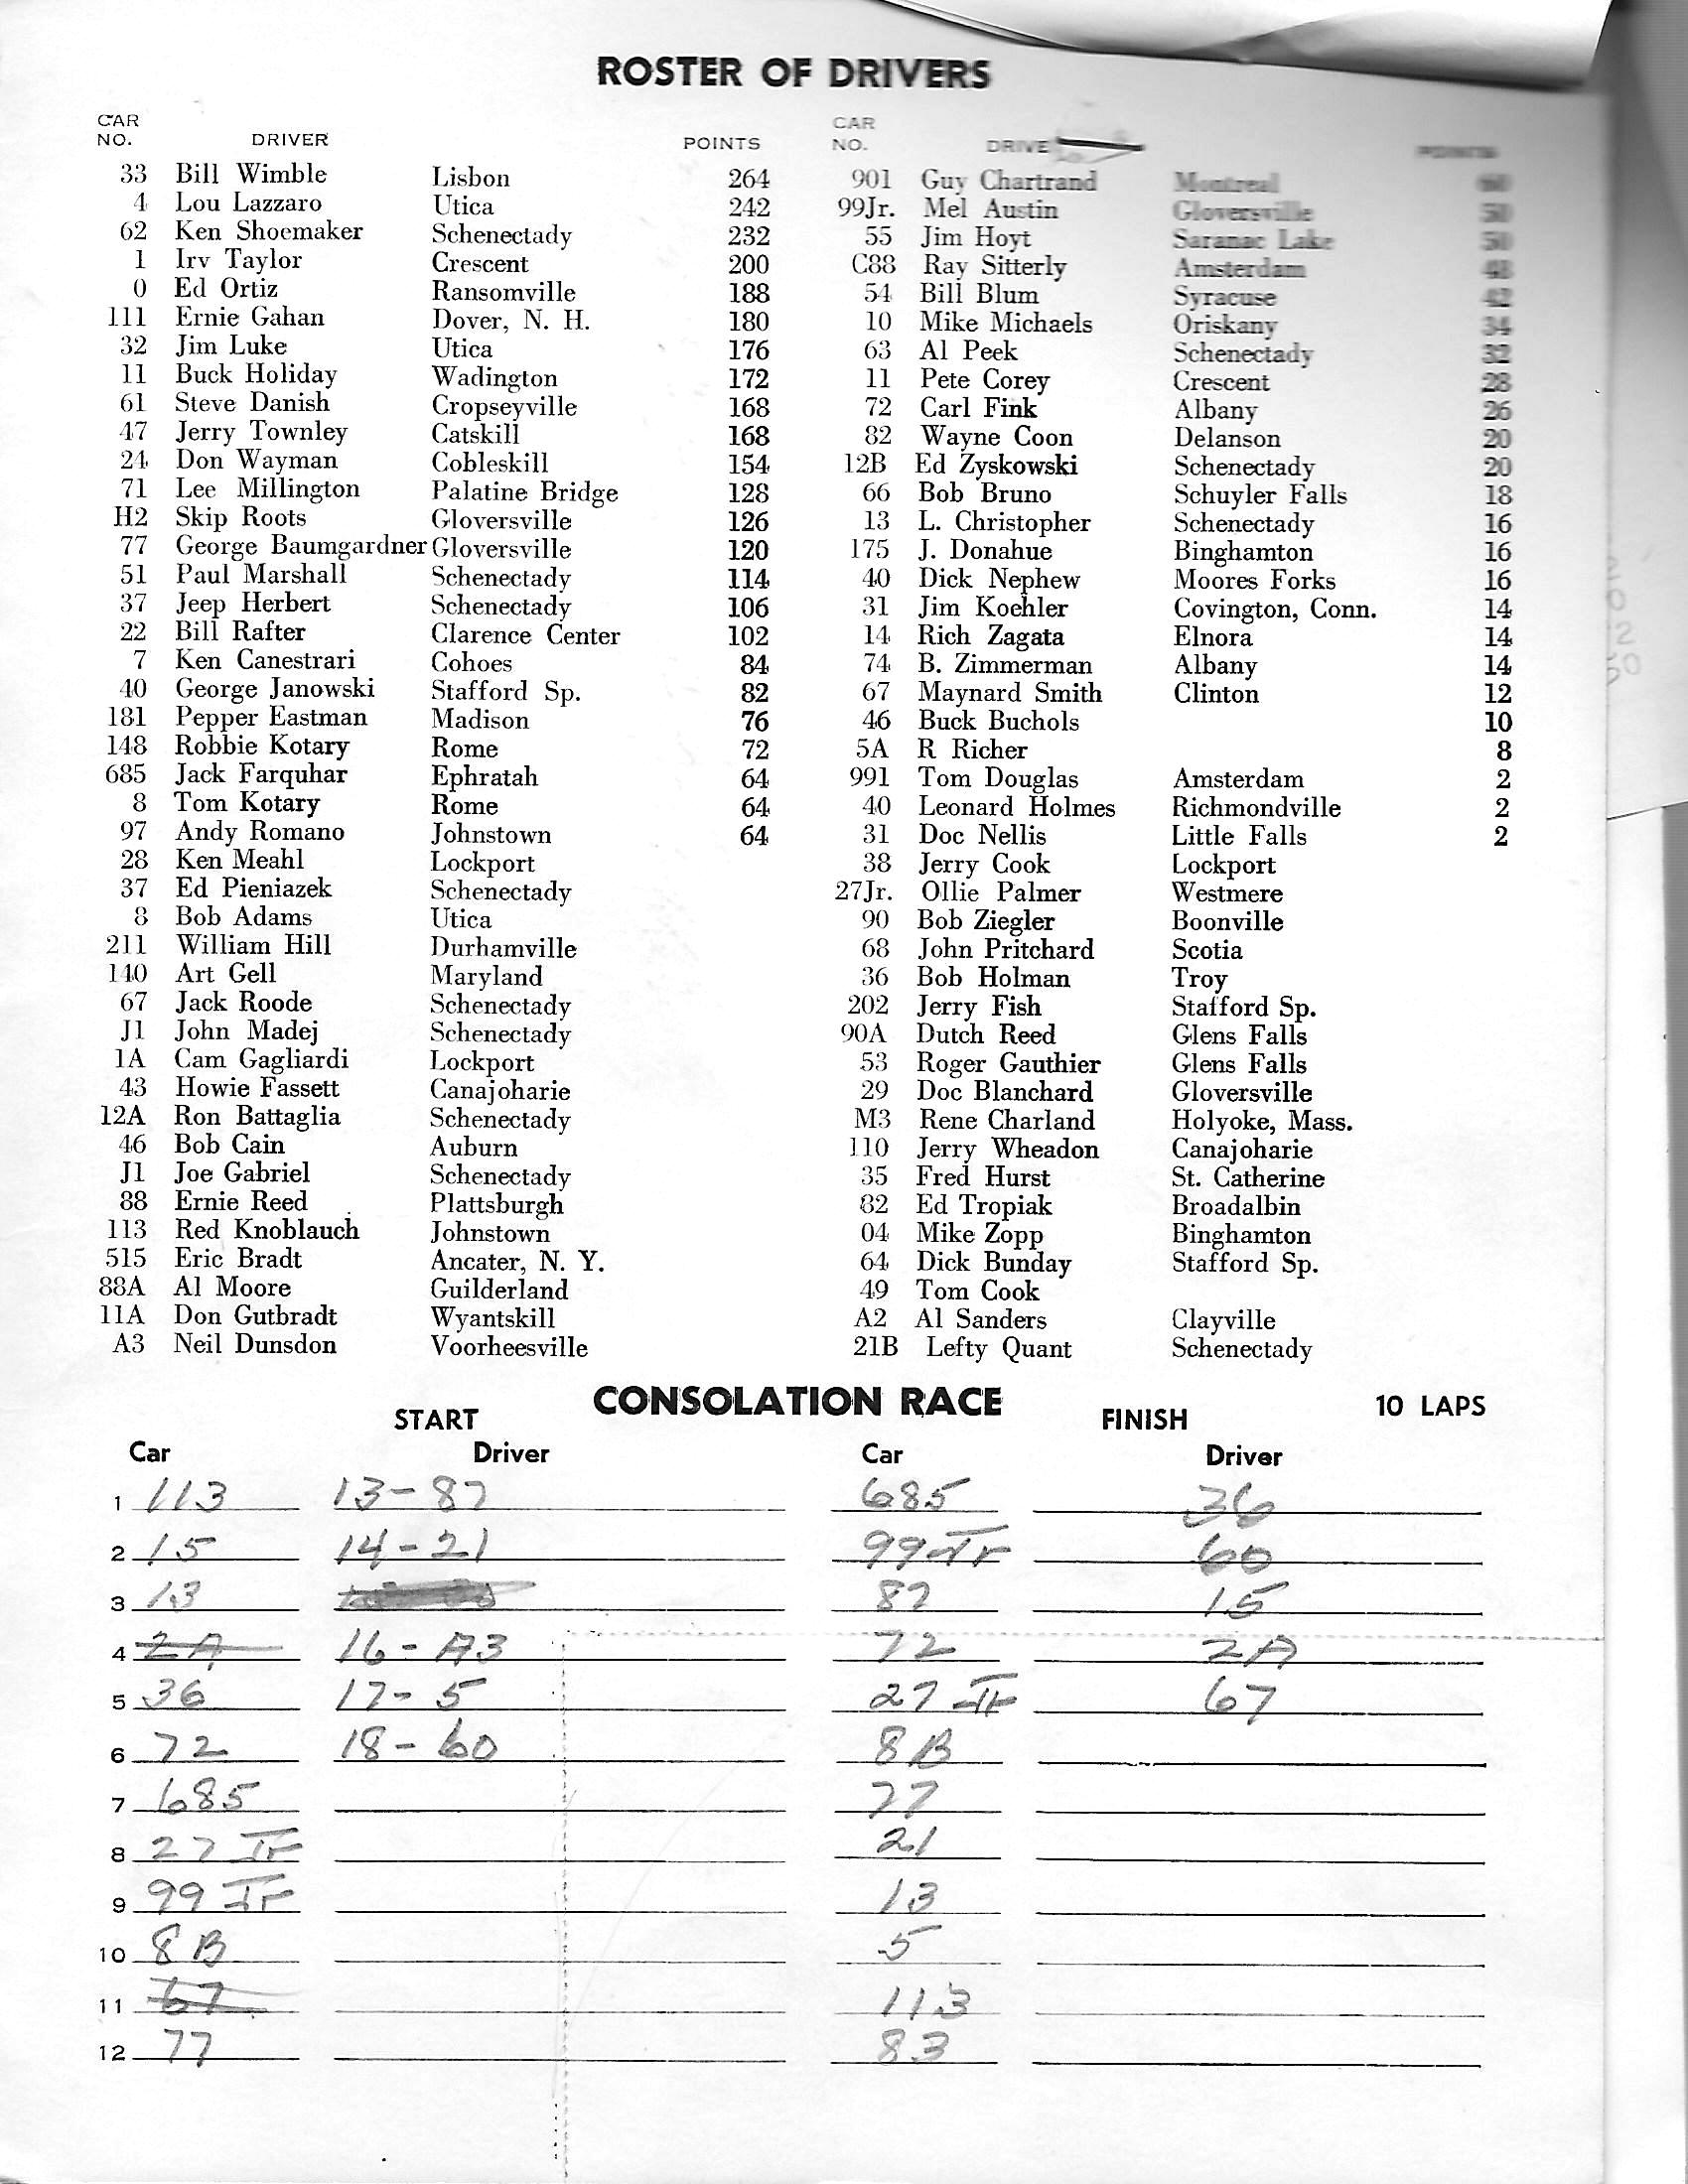 ROSTER OF DRIVERS
CAR
NO. DRIVER POINTS
33 Bill Wimble Lisbon 264
4 Lou Lazzaro Utica 242
62 Ken Shoemaker Schenectady 232
1 Irv Taylor Crescent 200
0 Ed Ortiz Ransomville 188
111 Ernie Gahan Dover, N. H. 180
32 Jim Luke Utica 176
11 Buck Holiday Wadington 172
61 Steve Danish Cropseyville 168
47 Jerry Townley Catskill 168
24 Don Wayman Cobleskill 154
71 Lee Millington Palatine Bridge 128
H2 Skip Roots Gloversville 126
77 George Baumgardner Gloversville 120
51 Paul Marshall Schenectady 114
37 Jeep Herbert Schenectady 106
22 Bill Rafter Clarence Center 102
7 Ken Canestrari Cohoes 84
40 George Janowski Stafford Sp. 82
181 Pepper Eastman Madison 76
148 Robbie Kotary Rome 72
685 Jack Farquhar Ephratah 64
8 Tom Kotary Rome 64
97 Andy Romano Johnstown 64
28 Ken Meahl Lockport
37 Ed Pieniazek Schenectady
8 Bob Adams Utica
211 William Hill Durhamville
140 Art Gell Maryland
67 Jack Roode Schenectady
J1 John Madej Schenectady
1A Cam Gagliardi Lockport
43 Howie Fassett Canajoharie
12A Ron Battaglia Schenectady
46 Bob Cain Auburn
J1 Joe Gabriel Schenectady
88 Ernie Reed Plattsburgh
113 Red Knoblauch Johnstown
515 Eric Bradt Ancater, N. Y.
88A Al Moore Guilderland
11A Don Gutbradt Wyantskill
A3 Neil Dunsdon Voorheesville
CAR
NO. DRIVE POINTS
901 Guy Chartrand Montreal 60
99Jr. Mel Austin Gloversville 50
55 Jim Hoyt Saranac Lake 50
C88 Ray Sitterly Amsterdam 48
54 Bill Blum Syracuse 42
10 Mike Michaels Oriskany 34
63 Al Peek Schenectady 32
11 Pete Corey Crescent 28
72 Carl Fink Albany 26
82 Wayne Coon Delanson 20
12B Ed Zyskowski Schenectady 20
66 Bob Bruno Schuyler Falls 18
13 L. Christopher Schenectady 16
175 J. Donahue Binghamton 16
40 Dick Nephew Moores Forks 16
31 Jim Koehler Covington, Conn. 14
14 Rich Zagata Elnora 14
74 B. Zimmerman Albany 14
67 Maynard Smith Clinton 12
46 Buck Buchols 10
5A R Richer 8
991 Tom Douglas Amsterdam 2
40 Leonard Holmes Richmondville 2
31 Doc Nellis Little Falls 2
38 Jerry Cook Lockport
27Jr. Ollie Palmer Westmere
90 Bob Ziegler Boonville
68 John Pritchard Scotia
36 Bob Holman Troy
202 Jerry Fish Stafford Sp.
90A Dutch Reed Glens Falls
53 Roger Gauthier Glens Falls
29 Doc Blanchard Gloversville
M3 Rene Charland Holyoke, Mass.
110 Jerry Wheadon Canajoharie
35 Fred Hurst St. Catherine
82 Ed Tropiak Broadalbin
04 Mike Zopp Binghamton
64 Dick Bunday Stafford Sp.
49 Tom Cook
A2 Al Sanders Clayville
21B Lefty Quant Schenectady
CONSOLATION RACE
START FINISH 10 LAPS
Car Driver Car Driver
1 113 13-82 685 36
2 15 14-21 99 Jr 60
3 13 82 15
4 2A 16-A3 72 2A
5 36 17-5 27 Jr 67
6 72 18-60 8B
7 685 77
8 27 Jr 21
9 99 Jr 13
10 8B 5
11 67 113
12 77 83